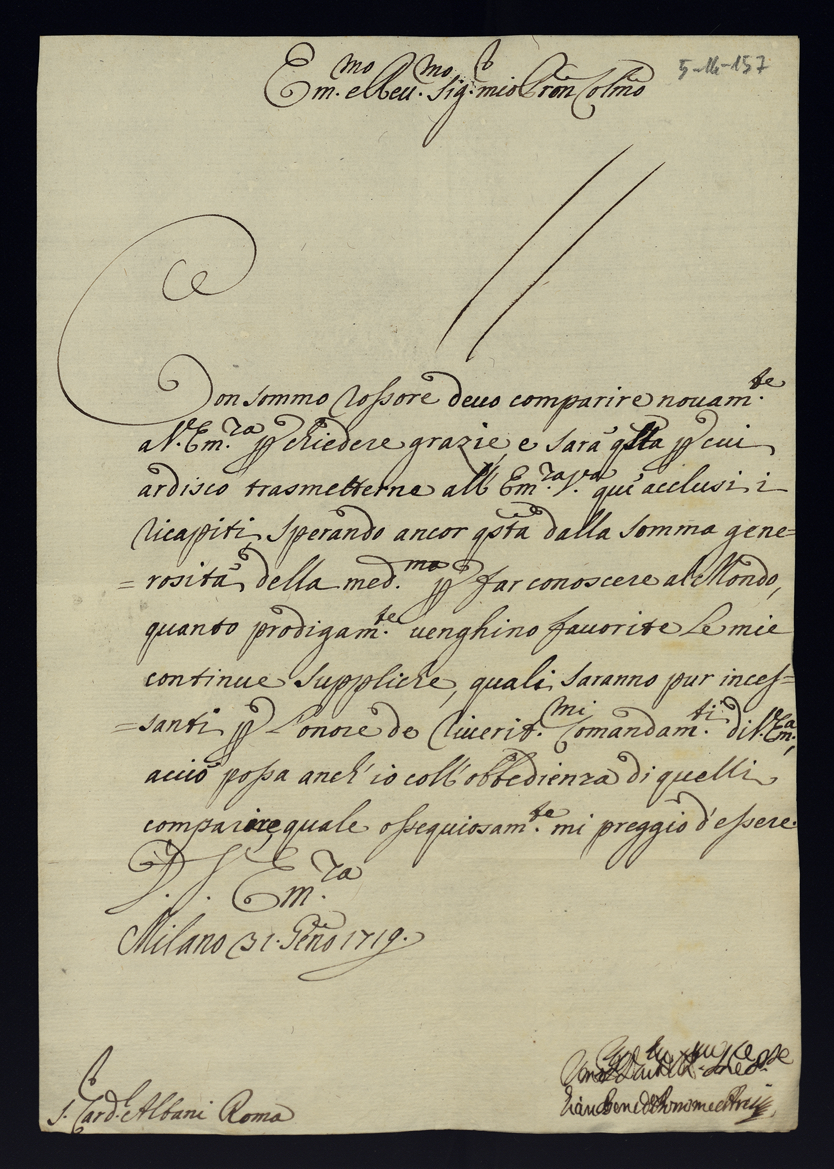 5-14-157
Em.mo e Reu.mo Sig.r mio Pron Colmo
Con sommo rossore deuo comparire nouam.te
a V. Em.za p chiedere grazie, e sarà qsta p cui
ardisco trasmetterne all' Em.za V.ra qui acclusi i
ricapiti, sperando ancor qsta dalla somma gene=
=rosità della med.ma p far conoscere al Mondo,
quanto prodigam.te uenghino fauorite le mie
continue suppliche, quali saranno pur inces=
=santi p l'onore de riuerit.mi Comandam.ti di V. Em.a,
acciò possa anch' io coll' obbedienza di quelli
comparire, quale ossequiosam.te mi preggio d'essere.
D. V. Em.za
Milano 31. Geno 1719.
S.r Card.e Albani Roma